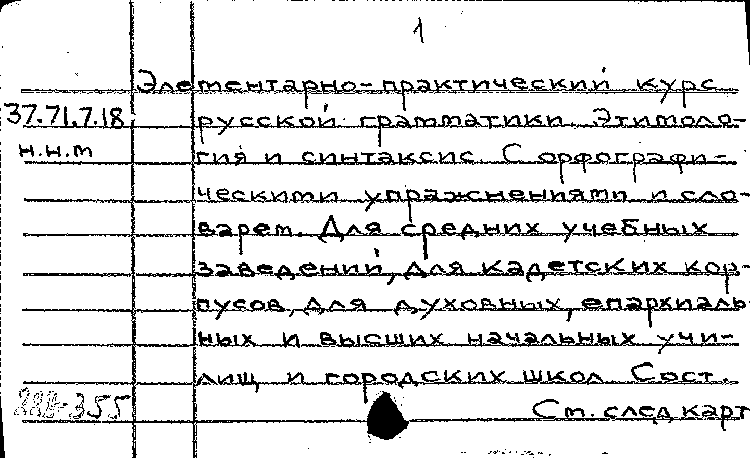 1
Элементарно-практический курс
37.71.7.18 русской грамматики. Этимоло-
н.н.т гия и синтаксис. С орфографи-
ческими упражнениями и сло-
варем. Для средних учебных
заведений, для кадетских кор-
пусов, для духовных, епархиаль-
ных и высших начальных учи-
лищ и городских школ. Сост.
355 См. след карт